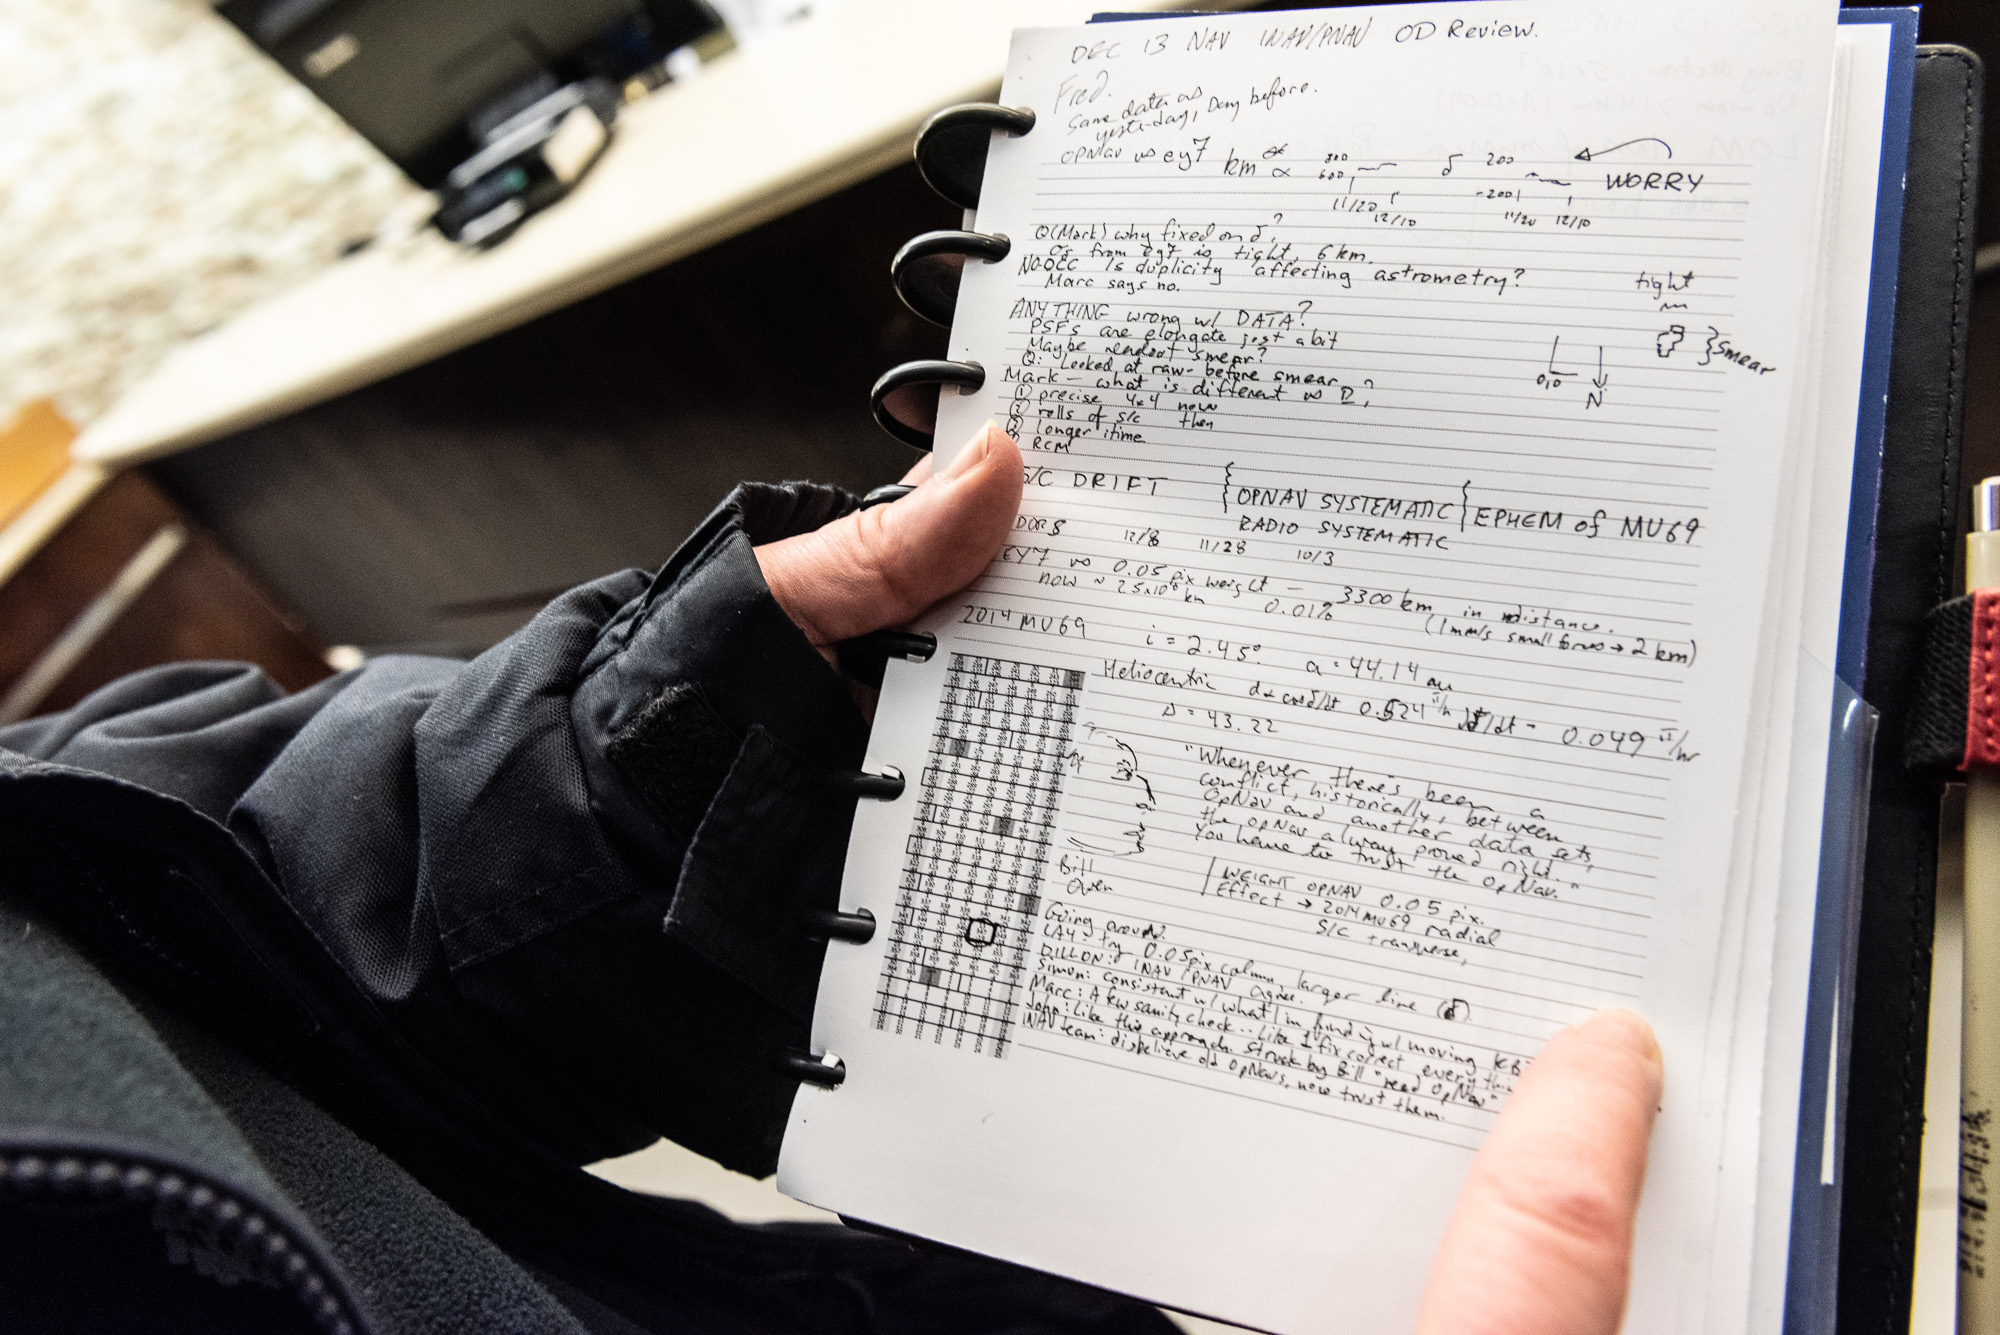 DEC 13 NAV INAV/PNAV OD Review.
Fred.
Same data as
yesterday, Day before.
OPNAV vs ey7 km α 800 600 11/20 12/10 δ 200 -200 11/20 12/10 WORRY
Q(Mark) why fixed on δ?
σs from ey7 is tight, 6 km.
NO-OCC Is duplicity affecting astrometry?
Marc says no.
tight
ANYTHING wrong w/ DATA?
PSFs are elongate just a bit
Maybe smear?
Q: Looked at raw - before smear
} smear
0,0 N
Mark - what is different vs
① precise 4x4 now
② rolls of s/c then
③ longer itime
RCM
S/C DRIFT { OPNAV SYSTEMATIC { EPHEM of MU69
RADIO SYSTEMATIC
DORS 12/8 11/28 10/3
EY7 vs 0.05 pix weight - 3300 km in distance.
now ~ 25x10⁶ km 0.01% (1 mm/s small forces → 2 km)
2014 MU69 i = 2.45° a = 44.14 au
Heliocentric dα cosδ/dt 0.524 "/hr dδ/dt = 0.049 "/hr
Δ = 43.22
"Whenever there's been a
conflict, historically, between
OpNav and another data sets,
the OpNav always proved right.
You have to trust the OpNav."
Bill
Owen
WEIGHT OPNAV 0.05 pix.
Effect → 2014 MU69 radial
S/C transverse,
Going around.
LAY: try 0.05 pix column, larger line (δ)
DILLON: INAV/PNAV agree.
Simon: consistent w/ what I'm finding w/ moving
Marc: A few sanity check.. Like 1 fix correct everything
John: Like this approach. Struck by Bill "need OpNav"
INAV team: disbelieve old OpNavs, now trust them.